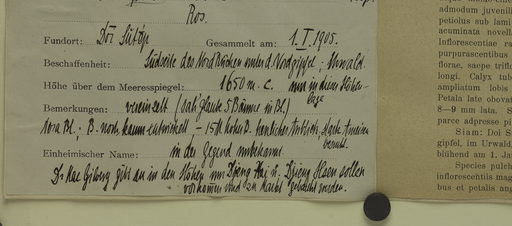 Ros.
Fundort: Doi Sutäp Gesammelt am: 1. I. 1905.
Beschaffenheit: Südseite des Nordrückens unter d. Nordgipfel, Urwald.
Höhe über dem Meeresspiegel: 1650 m. c. nur in dieser Höhen-
lage
Bemerkungen: vereinzelt (sah glaube 5 Bäume in Bl.)
rosa Bl.; B. noch kaum entwickelt, – 15 m hoher B.
Einheimischer Name: in der Gegend unbekannt.
Dr. Mac Gilvary gibt an in den Höhen um Djeng Hai u. Djieng Hsen sollen
vorkommen und zu Nacht gebracht werden.
admodum juvenili
petiolus sub lami
acuminata novell
Inflorescentiae ra
purpurascentibus
florae, saepe triflo
longi. Calyx tub
ampliatum lobis
Petala late obovat
8—9 mm lata. S
parce adpresse pi
Siam: Doi S
gipfel, im Urwald,
blühend am 1. Ja
Species pulch
inflorescentiis mag
bus et petalis ang